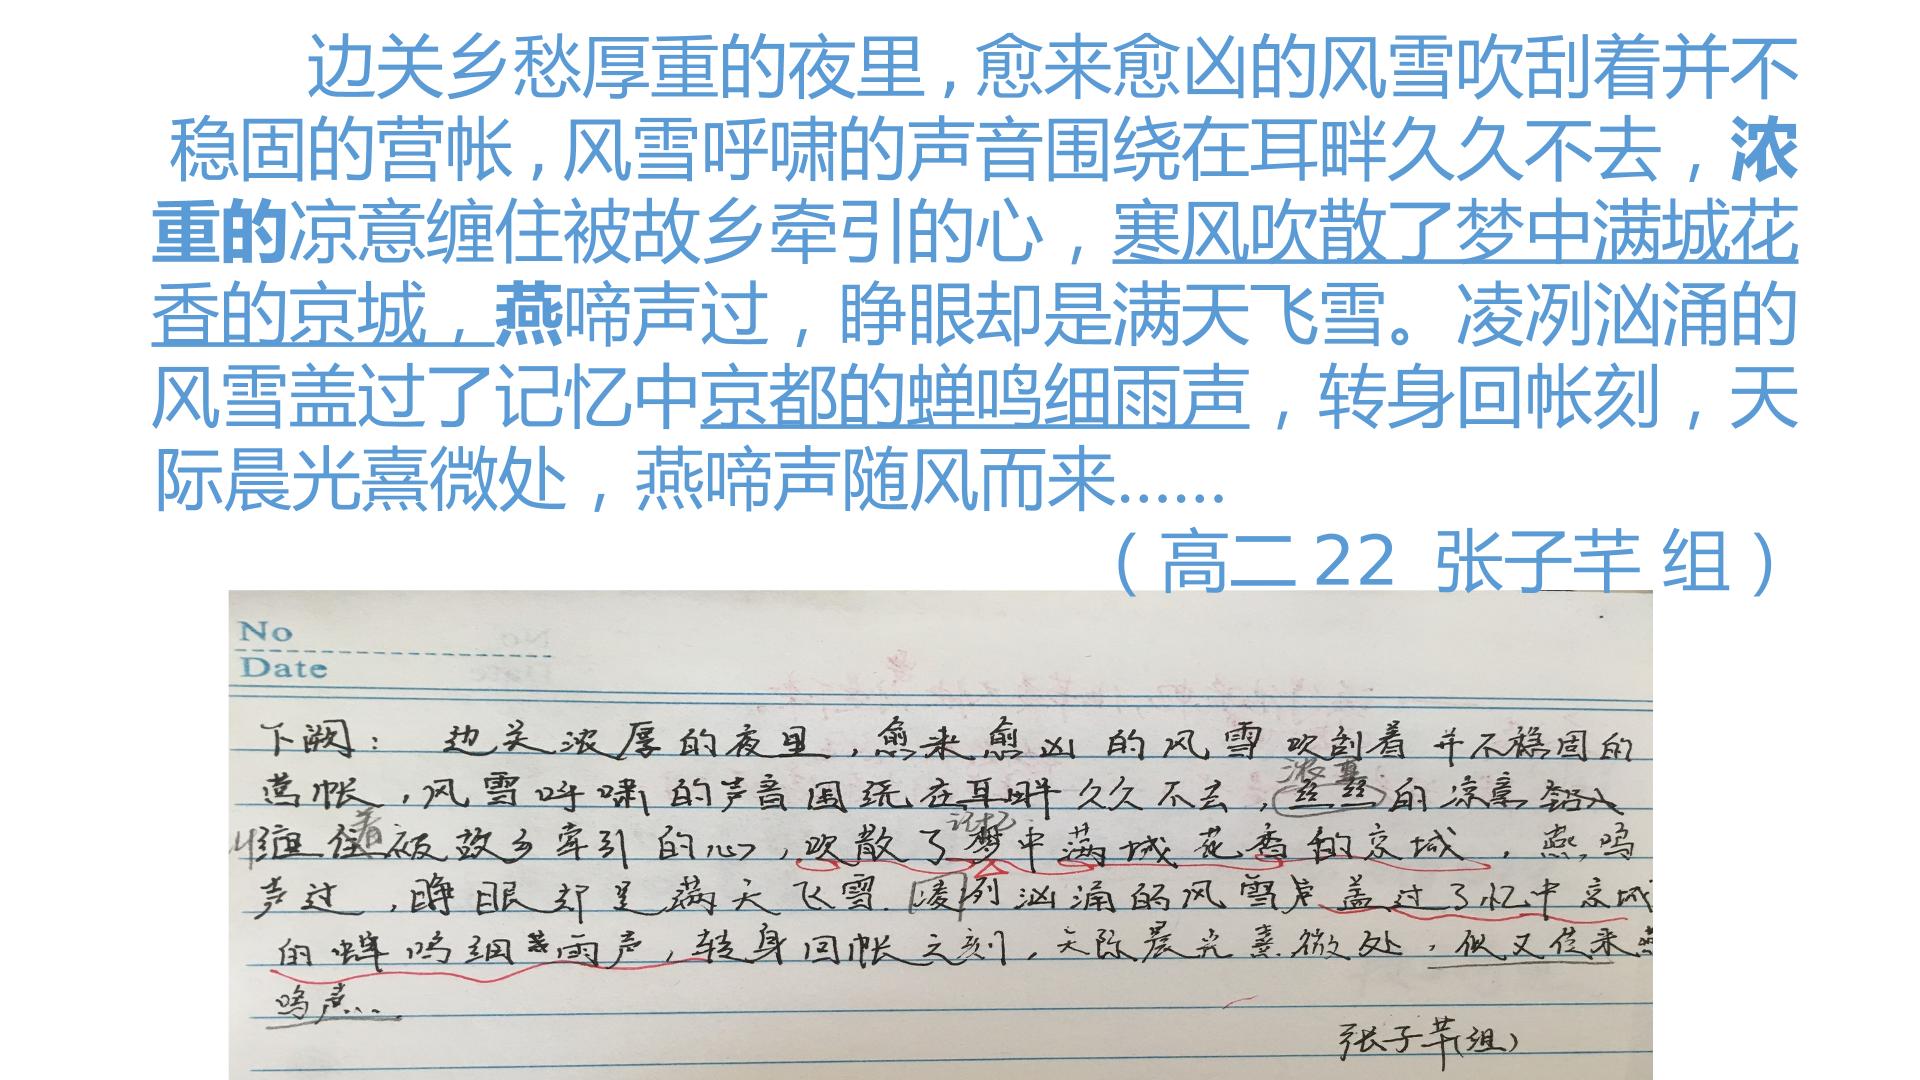 边关乡愁厚重的夜里,愈来愈凶的风雪吹刮着并不
稳固的营帐,风雪呼啸的声音围绕在耳畔久久不去，浓
重的凉意缠住被故乡牵引的心，寒风吹散了梦中满城花
香的京城，燕啼声过，睁眼却是满天飞雪。凌冽汹涌的
风雪盖过了记忆中京都的蝉鸣细雨声，转身回帐刻，天
际晨光熹微处，燕啼声随风而来……
（高二22 张子芊 组）
No
Date
下阙： 边关浓厚的夜里,愈来愈凶的风雪吹刮着并不稳固的
浓重
营帐,风雪呼啸的声音围绕在耳畔久久不去,丝丝的凉意
着 记忆
缠住被故乡牵引的心,吹散了梦中满城花香的京城,燕鸣
声过,睁眼却是满天飞雪.凌冽汹涌的风雪声盖过了忆中京城
的蝉鸣细雨声,转身回帐之刻,天际晨光熹微处,似又传来燕
鸣声...
张子芊(组)